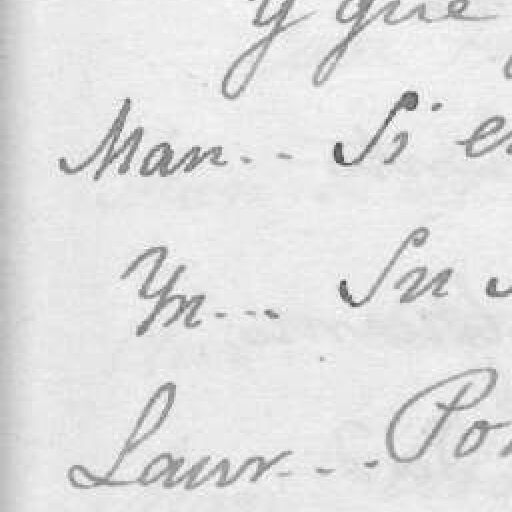 y que
Man... Si
Yn.... Su
Laur....